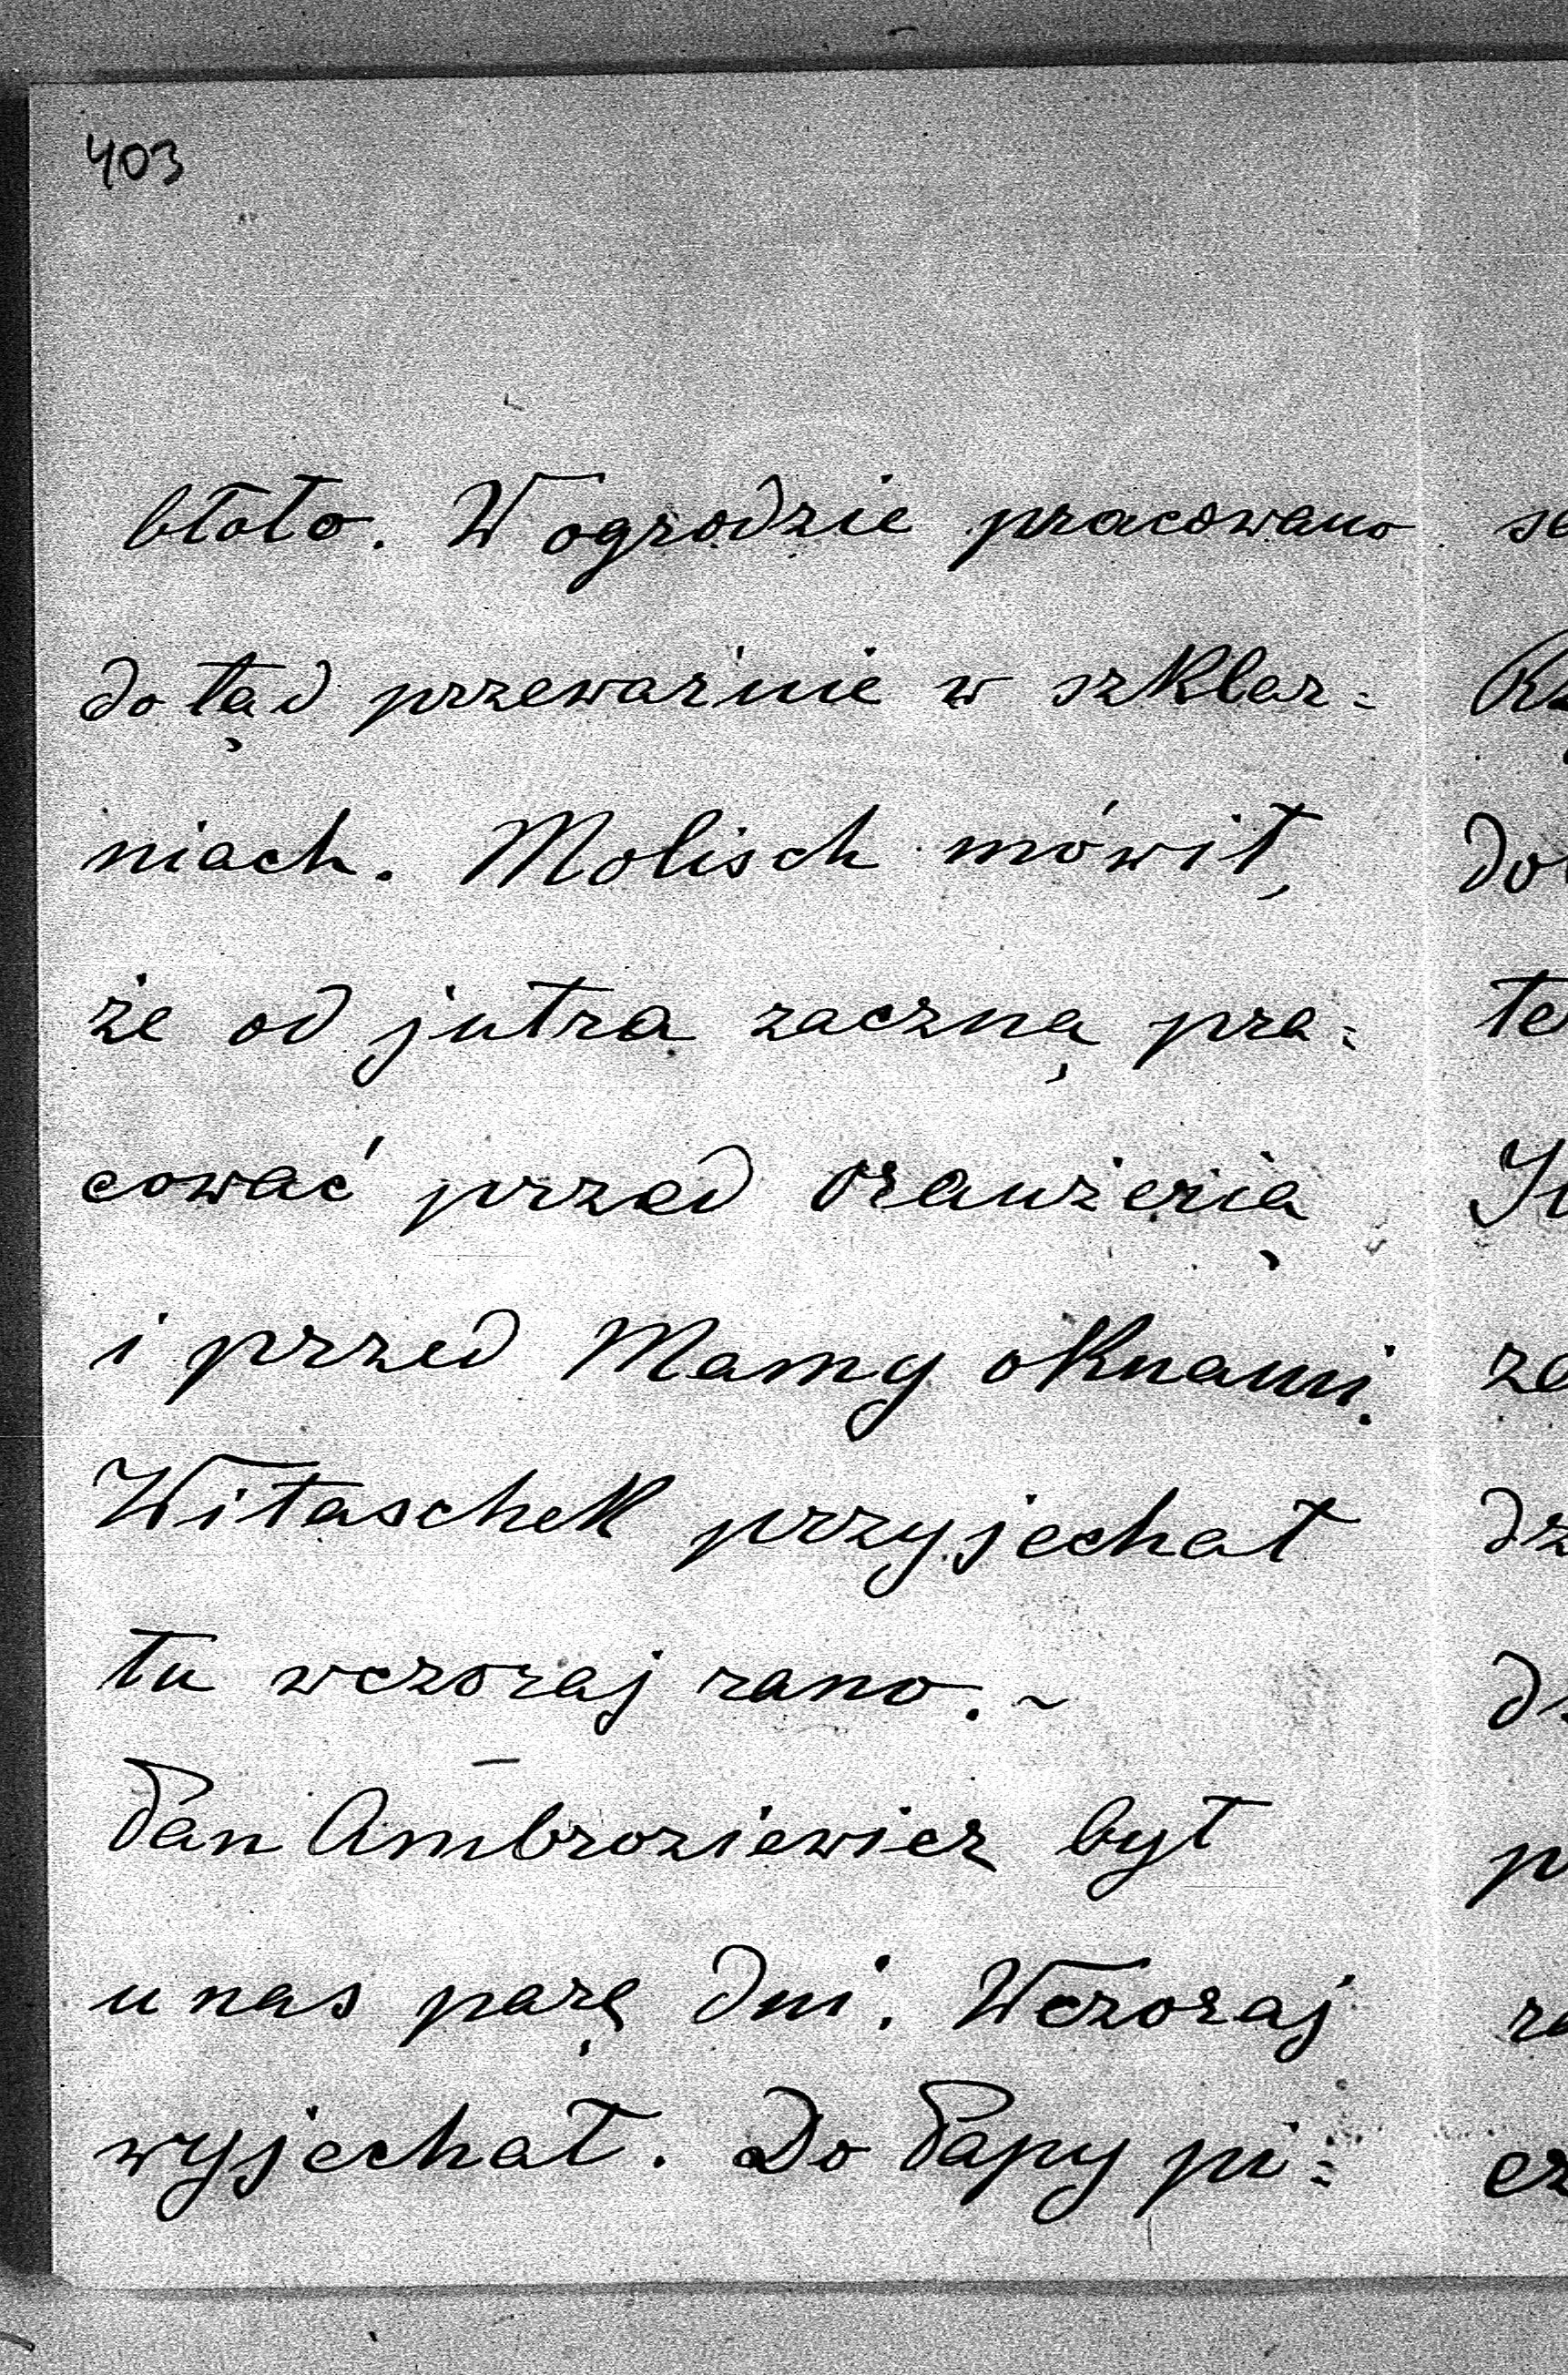 403
błoto. W ogrodzie pracowano
dotąd przeważnie w szklar=
niach. Molisch mówił,
że od jutra zaczną pra=
cować przed oranżerią
i przed Mamy oknami.
Witaschek przyjechał
tu wczoraj rano. ~
Pan Ambroziewicz był
u nas parę dni. Wczoraj
wyjechał. Do Papy pi=